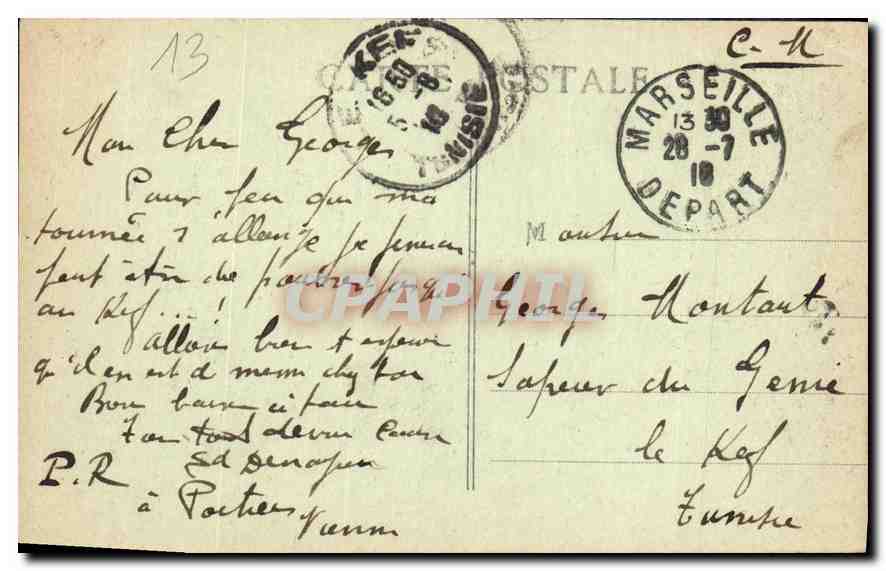 13
C-M
CARTE POSTALE
LE KEF
16 50
5 -8
10
TUNISIE
MARSEILLE
13 30
28 -7
10
DEPART
Mon Cher Georges
Pour peu que ma
tournée s'allonge je
peut être de jusqu'
au Kef ... !
Allons bien & espère
qu'il en est de meme chez toi
Bon baiser à tous
Ton tout
P.R
à Poitiers
Vienne
Monsieur
Georges Montaut
Sapeur du Genie
le Kef
Tunisie
CPAPHIL